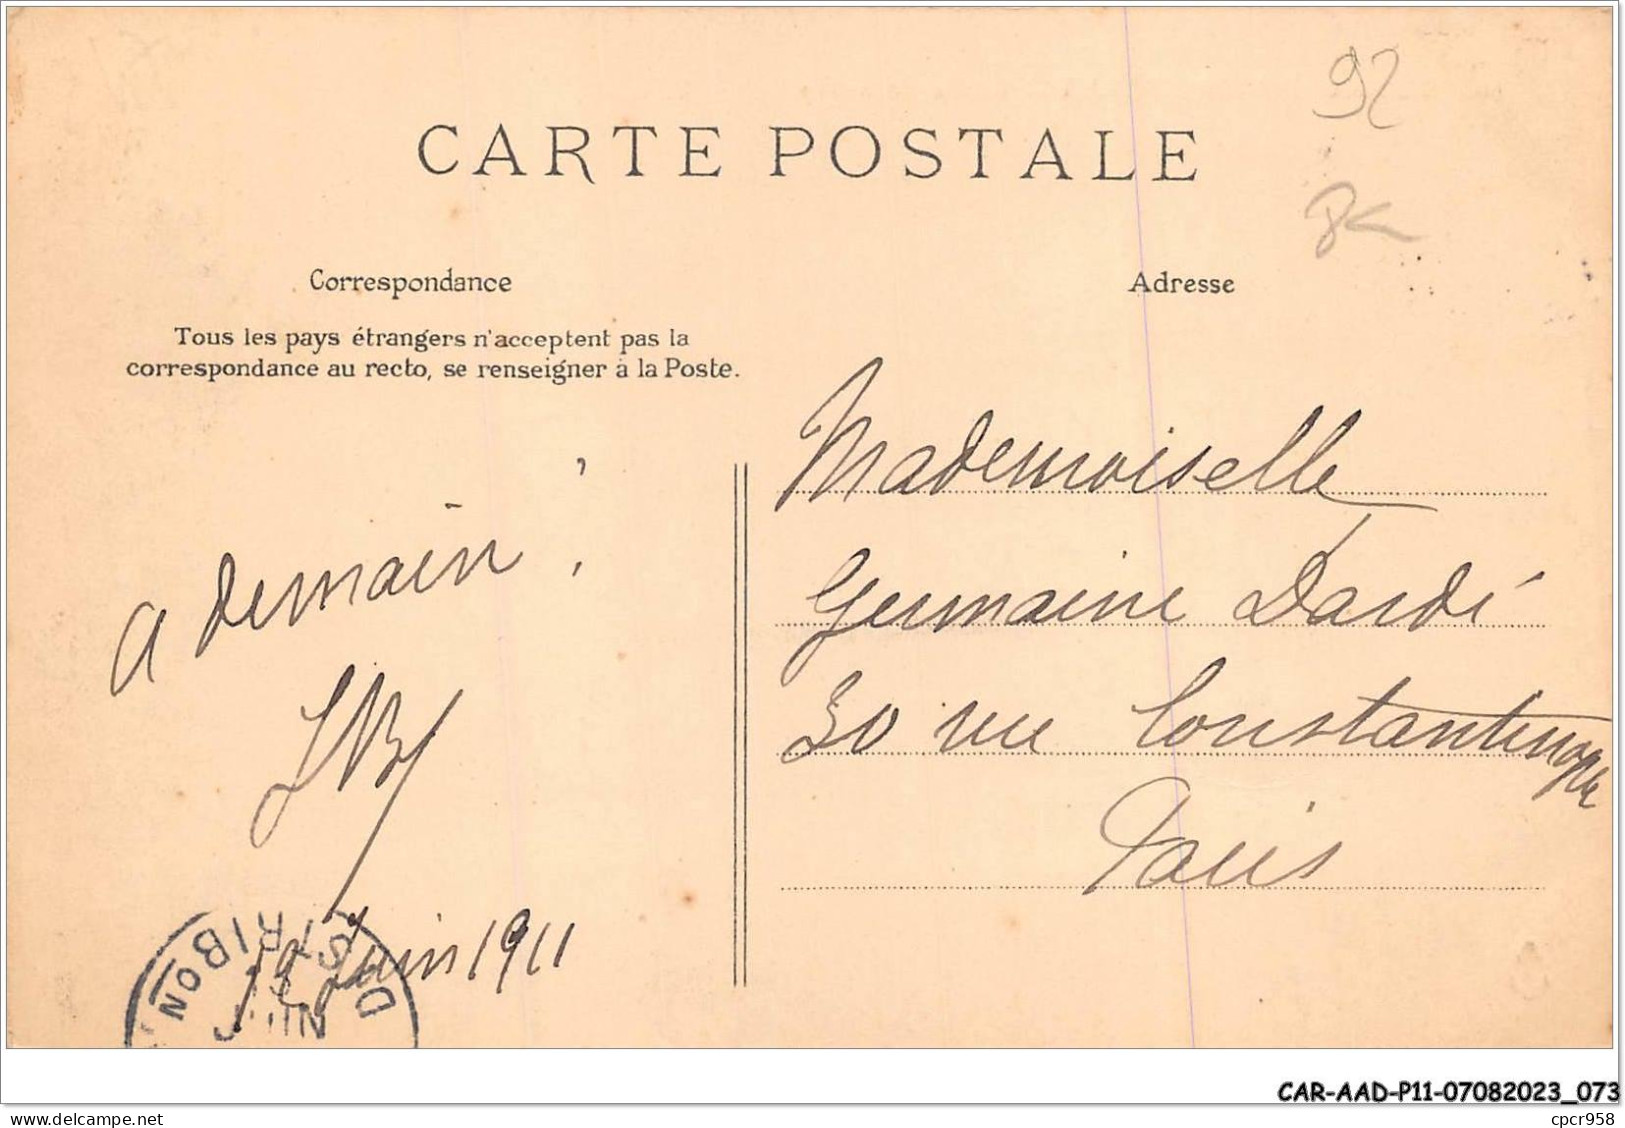 92
CARTE POSTALE
Correspondance
Adresse
Tous les pays étrangers n'acceptent pas la
correspondance au recto, se renseigner à la Poste.
Mademoiselle
Germaine Dardé
30 rue Constantinople
Paris
A demain !
12 Juin 1911
DISTRIBON
13
JUIN
CAR-AAD-P11-07082023_073
cpcr958